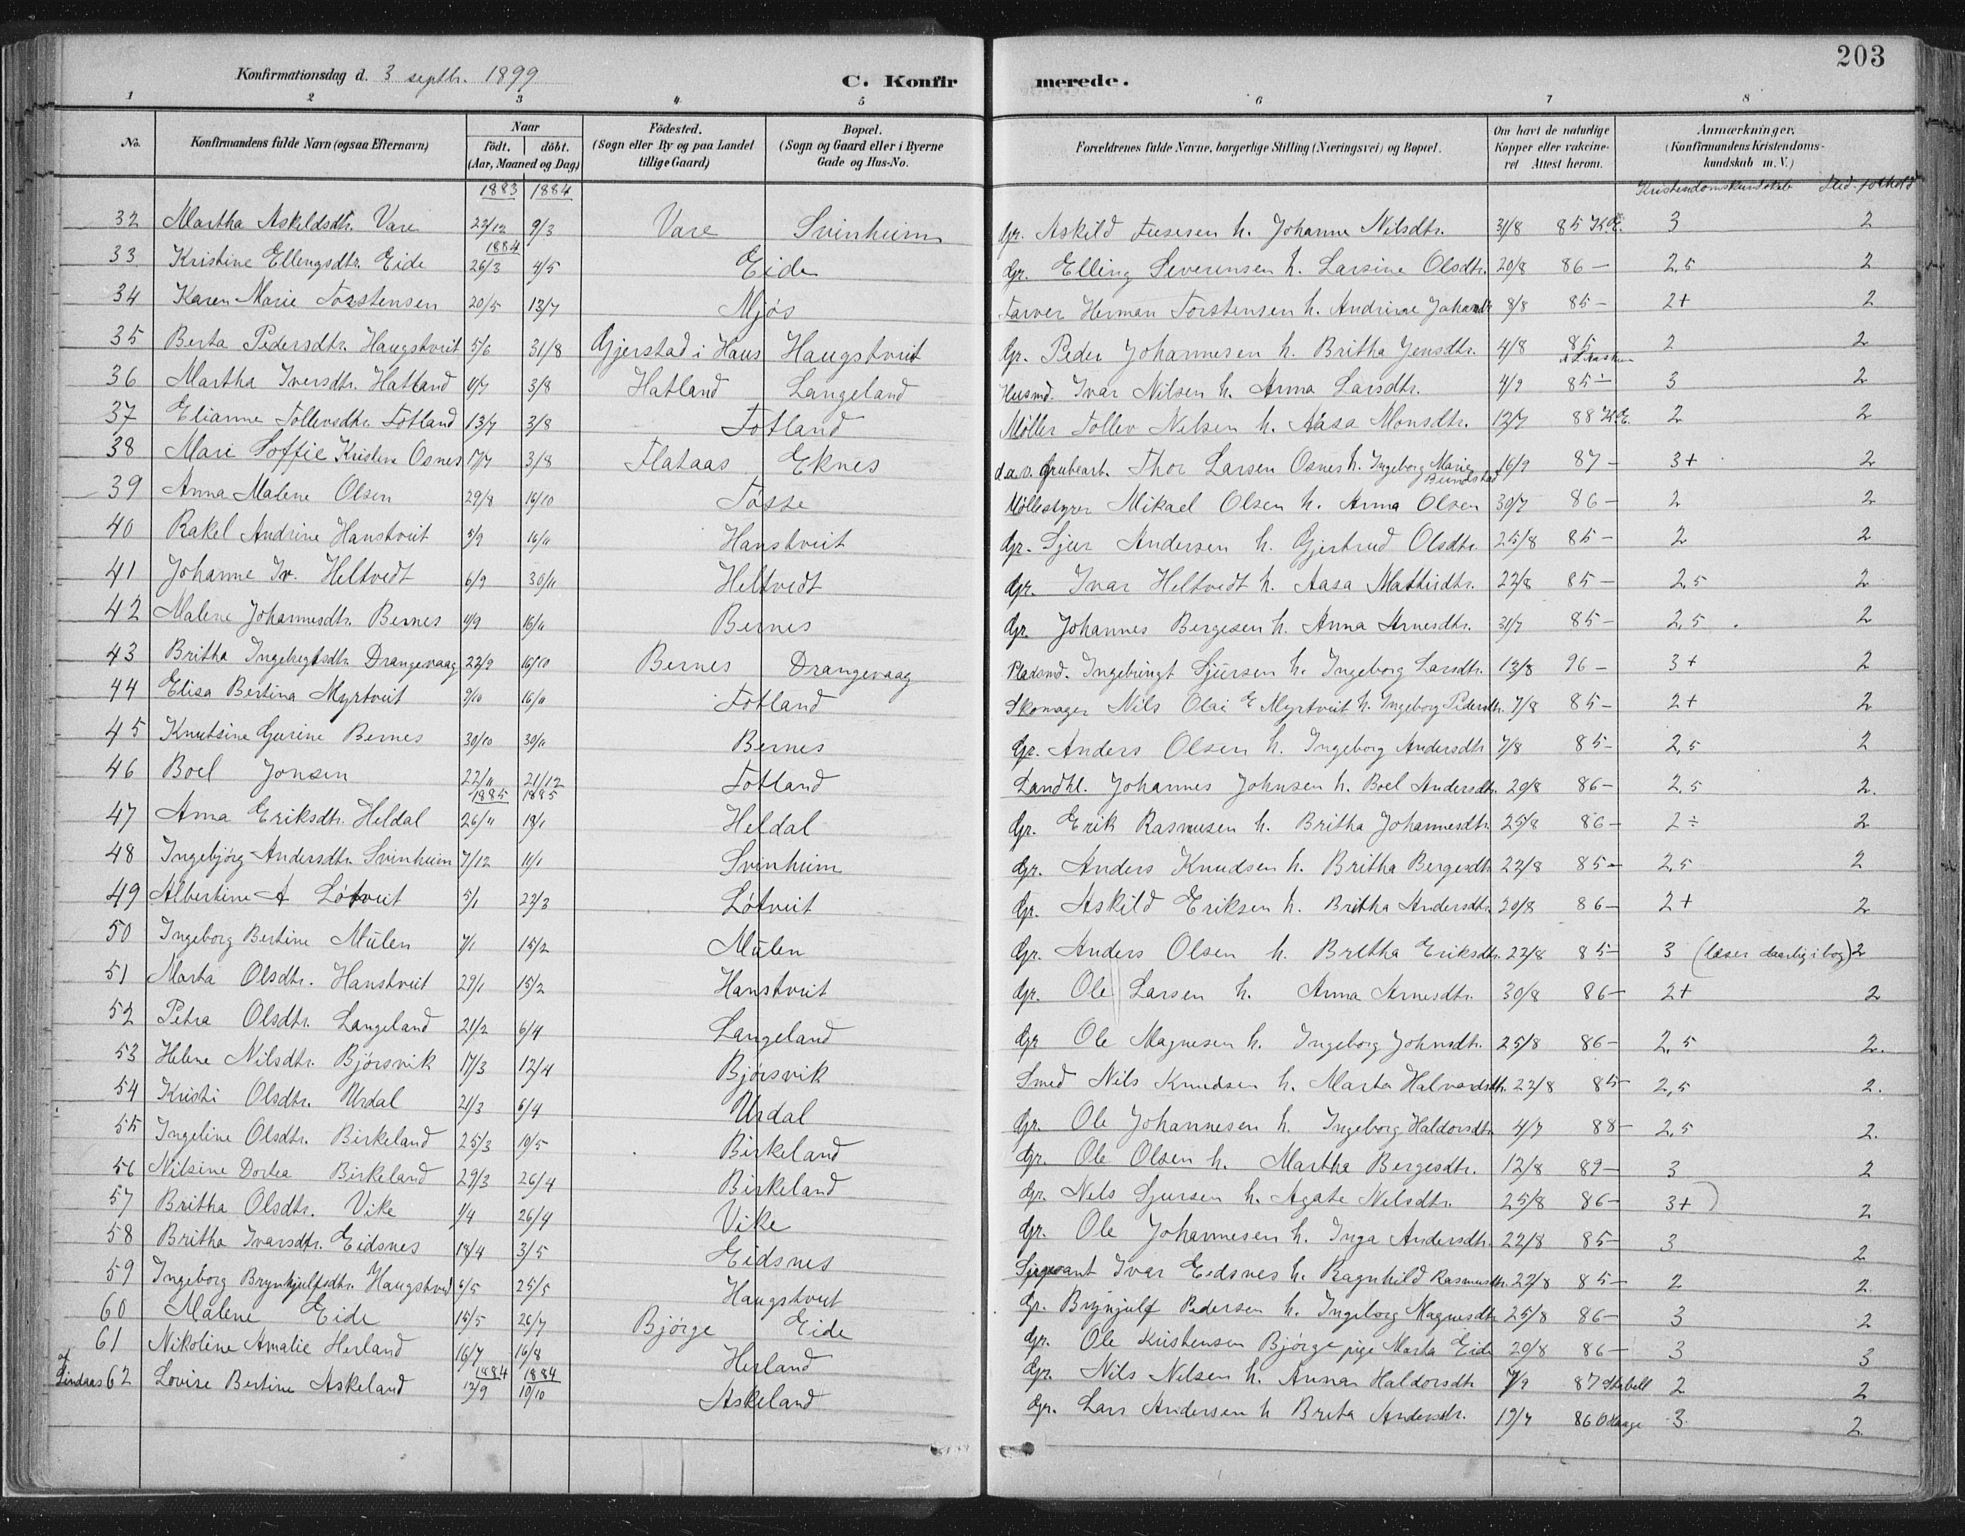 203
Konfirmationsdag d. 3 septbr. 1899
C. Konfirmerede.
1 2 3 4 5 6 7 8
No. Konfirmandens fulde Navn (ogsaa Efternavn) Naar födt. döbt. (Aar, Maaned og Dag) Födested. (Sogn eller By og paa Landet tillige Gaard) Bopæl. (Sogn og Gaard eller i Byerne Gade og Hus-No. Forældrenes fulde Navne, borgerlige Stilling (Næringsvei) og Bopæl. Om havt de naturlige Kopper eller vakcineret Attest herom. Anmærkninger. (Konfirmandens Kristendomskundskab m. V.)
1883 1884 Kristendomskundskab Flid. forhold
32 Martha Askildsdtr. Vare 22/12 9/3 Vare Svinheim Gr. Askild h. Johanne Nilsdtr. 31/8 85 3 2
1884
33 Kristine Ellengsdtr. Eide 26/3 4/5 Eide Gr. Elling Severensen h. Larsine Olsdtr. 20/8 86 — 2,5 2
34 Karen Marie Torstensen 20/5 13/7 Mjøs Farver Herman Torstensen h. Andrine 8/8 85 — 2+ 2
35 Berta Pedersdtr. Haugstveit 5/6 31/8 Gjerstad i Haus Haugstveit Gr. Peder Johannesen h. Britha Jensdtr. 4/8 85 2 2
36 Martha Iversdtr. Hatland 4/7 3/8 Hatland Langeland Husmd. Ivar Nilsen h. Anna Larsdtr. 4/9 85 — 3 2
37 Elianne Tollevsdtr. Totland 13/7 3/8 Totland Møller Tollev Nelsen h. Aasa Monsdtr. 12/7 88 2 2
38 Mari Soffie Kristine Osnes 17/7 3/8 Flataas Eknes d.a.v. Grubearb. Thor Larsen Osnes h. Ingeborg Marie 16/9 87 — 3+ 2
39 Anna Malene Olsen 29/8 16/10 Tosse Møllestyrer Mikael Olsen h. Anna Olsen 30/7 86 — 2 2
40 Rakel Andrine Hanstveit 5/9 16/11 Hanstveit Gr. Sjur Andersen h. Gjertrud Olsdtr. 25/8 85 — 2 2
41 Johanne Iv. Heltvedt 6/9 30/11 Heltvedt Gr. Ivar Heltvedt h. Aasa Mattisdtr. 22/8 85 — 2,5 2
42 Malene Johannesdtr. Bernes 4/9 16/11 Bernes Gr. Johannes Bergesen h. Anna Arnesdtr. 31/7 85 — 2,5 2
43 Britha Ingebrigtsdtr. Drangevaag 22/9 16/10 Bernes Drangevaag Pladsmd. Ingebrigt Sjursen h. Ingeborg Larsdtr. 13/8 96 — 3+ 2
44 Elisa Bertina Myrtveit 9/10 16/11 Totland Skomager Nils Olai E Myrtveit h. Ingeborg Pedersdtr. 7/8 85 — 2+ 2
45 Knutsine Gurine Bernes 30/10 30/11 Bernes Gr. Anders Olsen h. Ingeborg Andersdtr 7/8 85 — 2,5 2
46 Boel Jonsen 22/11 21/12 Totland Landhl. Johannes Johnsen h. Boel Andersdtr. 29/8 86 — 2,5 2.
1885 1885
47 Anna Eriksdtr. Heldal 26/11 18/1 Heldal Gr. Erik Rasmusen h. Britha Johannesdtr. 25/8 86 — 2 ÷ 2
48 Ingebjørg Andersdtr. Svinheim 7/12 11/1 Svinheim Gr. Anders Knudsen h. Britha Bergesdtr 22/8 85 — 2,5 2
49 Albertine A Løtveit 5/1 22/3 Løtveit Gr. Askild Eriksen h. Britha Andersdtr. 20/8 86 — 2+ 2
50 Ingeborg Bertine Mülen 7/1 15/2 Mülen Gr. Anders Olsen h. Britha Eriksdtr. 22/8 85 — 3 (læser daarlig i bog) 2
51 Marta Olsdtr. Hanstveit 29/1 15/2 Hanstveit Gr. Ole Larsen h. Anna Arnesdtr. 30/8 86 — 2+ 2
52 Petra Olsdtr. Langeland 21/2 6/4 Langeland Gr Ole Magnesen h. Ingeborg Johnsdtr. 25/8 86 — 2,5 2.
53 Helene Nilsdtr. Bjørsvik 17/3 12/4 Bjørsvik Smed Nils Knudsen h. Marta Halvardsdtr. 22/8 85 — 2,5 2.
54 Kristi Olsdtr. Urdal 21/3 6/4 Urdal Gr. Ole Johannesen h. Ingeborg Haldorsdtr 4/7 88 — 2,5 2.
55 Ingeline Olsdtr. Birkeland 25/3 10/5 Birkeland Gr. Ole Olsen h. Martha Bergesdtr. 12/8 89 — 3 2
56 Nilsine Dortea Birkeland 29/3 26/4 Birkeland Gr. Nils Sjursen h. Agate Nilsdtr. 25/8 86 — 3+ 2
57 Britha Olsdtr. Vike 1/4 26/4 Vike Gr. Ole Johannesen h. Inga Andersdtr. 22/8 85 — 3 2
58 Britha Ivarsdtr. Eidsnes 18/4 3/5 Eidsnes Sergeant Ivar Eidsnes h. Ragnhild Rasmusdtr. 22/8 85 — 2 2
59 Ingeborg Brynhjulfsdtr. Haugstveit 6/5 25/5 Haugstveit Gr. Brynjulf Pedersen h. Ingeborg Magnesdtr 25/8 86 — 3 2
60 Malene Eide 15/5 26/7 Bjørge Eide Gr. Ole Kristensen Bjørge pige Marta Eide 29/8 86 — 3 3
61 Nikoline Amalie Herland 16/7 16/8 Herland Gr. Nils Nilsen h. Anna Haldorsdtr 7/9 87 2 2
1884 1884
af Lindaas 62 Lovise Bertine Askeland 12/9 10/10 Askeland Gr. Lars Andersen h Brita Andersdtr. 19/7 86 3 2